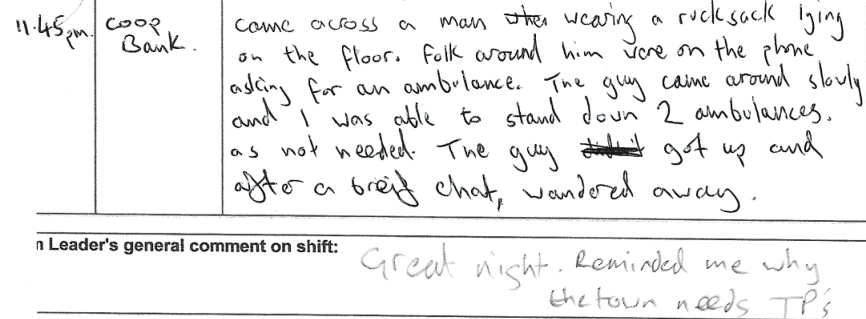 11.45pm. Coop Bank.
came across a man wearing a rucksack lying
on the floor. Folk around him were on the phone
asking for an ambulance. The guy came around slowly
and I was able to stand down 2 ambulances.
as not needed. The guy got up and
after a breif chat, wandered away.
n Leader's general comment on shift:
Great night. Reminded me why
the town needs TP's